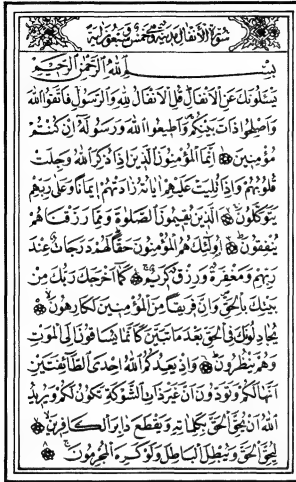 سورة الأنفال مدنية وهي خمس وسبعون آية
بِسْمِ اللهِ الرَّحْمٰنِ الرَّحِيمِ
يَسْئَلُونَكَ عَنِ الْأَنْفَالِ قُلِ الْأَنْفَالُ لِلّٰهِ وَالرَّسُولِ فَاتَّقُوا اللهَ
وَاَصْلِحُوا ذَاتَ بَيْنِكُمْ وَاَطِيعُوا اللهَ وَرَسُولَهُ اِنْ كُنْتُمْ
مُؤْمِنِينَ اِنَّمَا الْمُؤْمِنُونَ الَّذِينَ اِذَا ذُكِرَ اللهُ وَجِلَتْ
قُلُوبُهُمْ وَاِذَا تُلِيَتْ عَلَيْهِمْ اٰيَاتُهُ زَادَتْهُمْ اِيمَانًا وَعَلٰى رَبِّهِمْ
يَتَوَكَّلُونَ الَّذِينَ يُقِيمُونَ الصَّلٰوةَ وَمِمَّا رَزَقْنَاهُمْ
يُنْفِقُونَ اُولٰئِكَ هُمُ الْمُؤْمِنُونَ حَقًّا لَهُمْ دَرَجَاتٌ عِنْدَ
رَبِّهِمْ وَمَغْفِرَةٌ وَرِزْقٌ كَرِيمٌ كَمَا اَخْرَجَكَ رَبُّكَ مِنْ
بَيْتِكَ بِالْحَقِّ وَاِنَّ فَرِيقًا مِنَ الْمُؤْمِنِينَ لَكَارِهُونَ
يُجَادِلُونَكَ فِي الْحَقِّ بَعْدَ مَا تَبَيَّنَ كَاَنَّمَا يُسَاقُونَ اِلَى الْمَوْتِ
وَهُمْ يَنْظُرُونَ وَاِذْ يَعِدُكُمُ اللهُ اِحْدَى الطَّائِفَتَيْنِ
اَنَّهَا لَكُمْ وَتَوَدُّونَ اَنَّ غَيْرَ ذَاتِ الشَّوْكَةِ تَكُونُ لَكُمْ وَيُرِيدُ
اللهُ اَنْ يُحِقَّ الْحَقَّ بِكَلِمَاتِهِ وَيَقْطَعَ دَابِرَ الْكَافِرِينَ
لِيُحِقَّ الْحَقَّ وَيُبْطِلَ الْبَاطِلَ وَلَوْ كَرِهَ الْمُجْرِمُونَ ٨